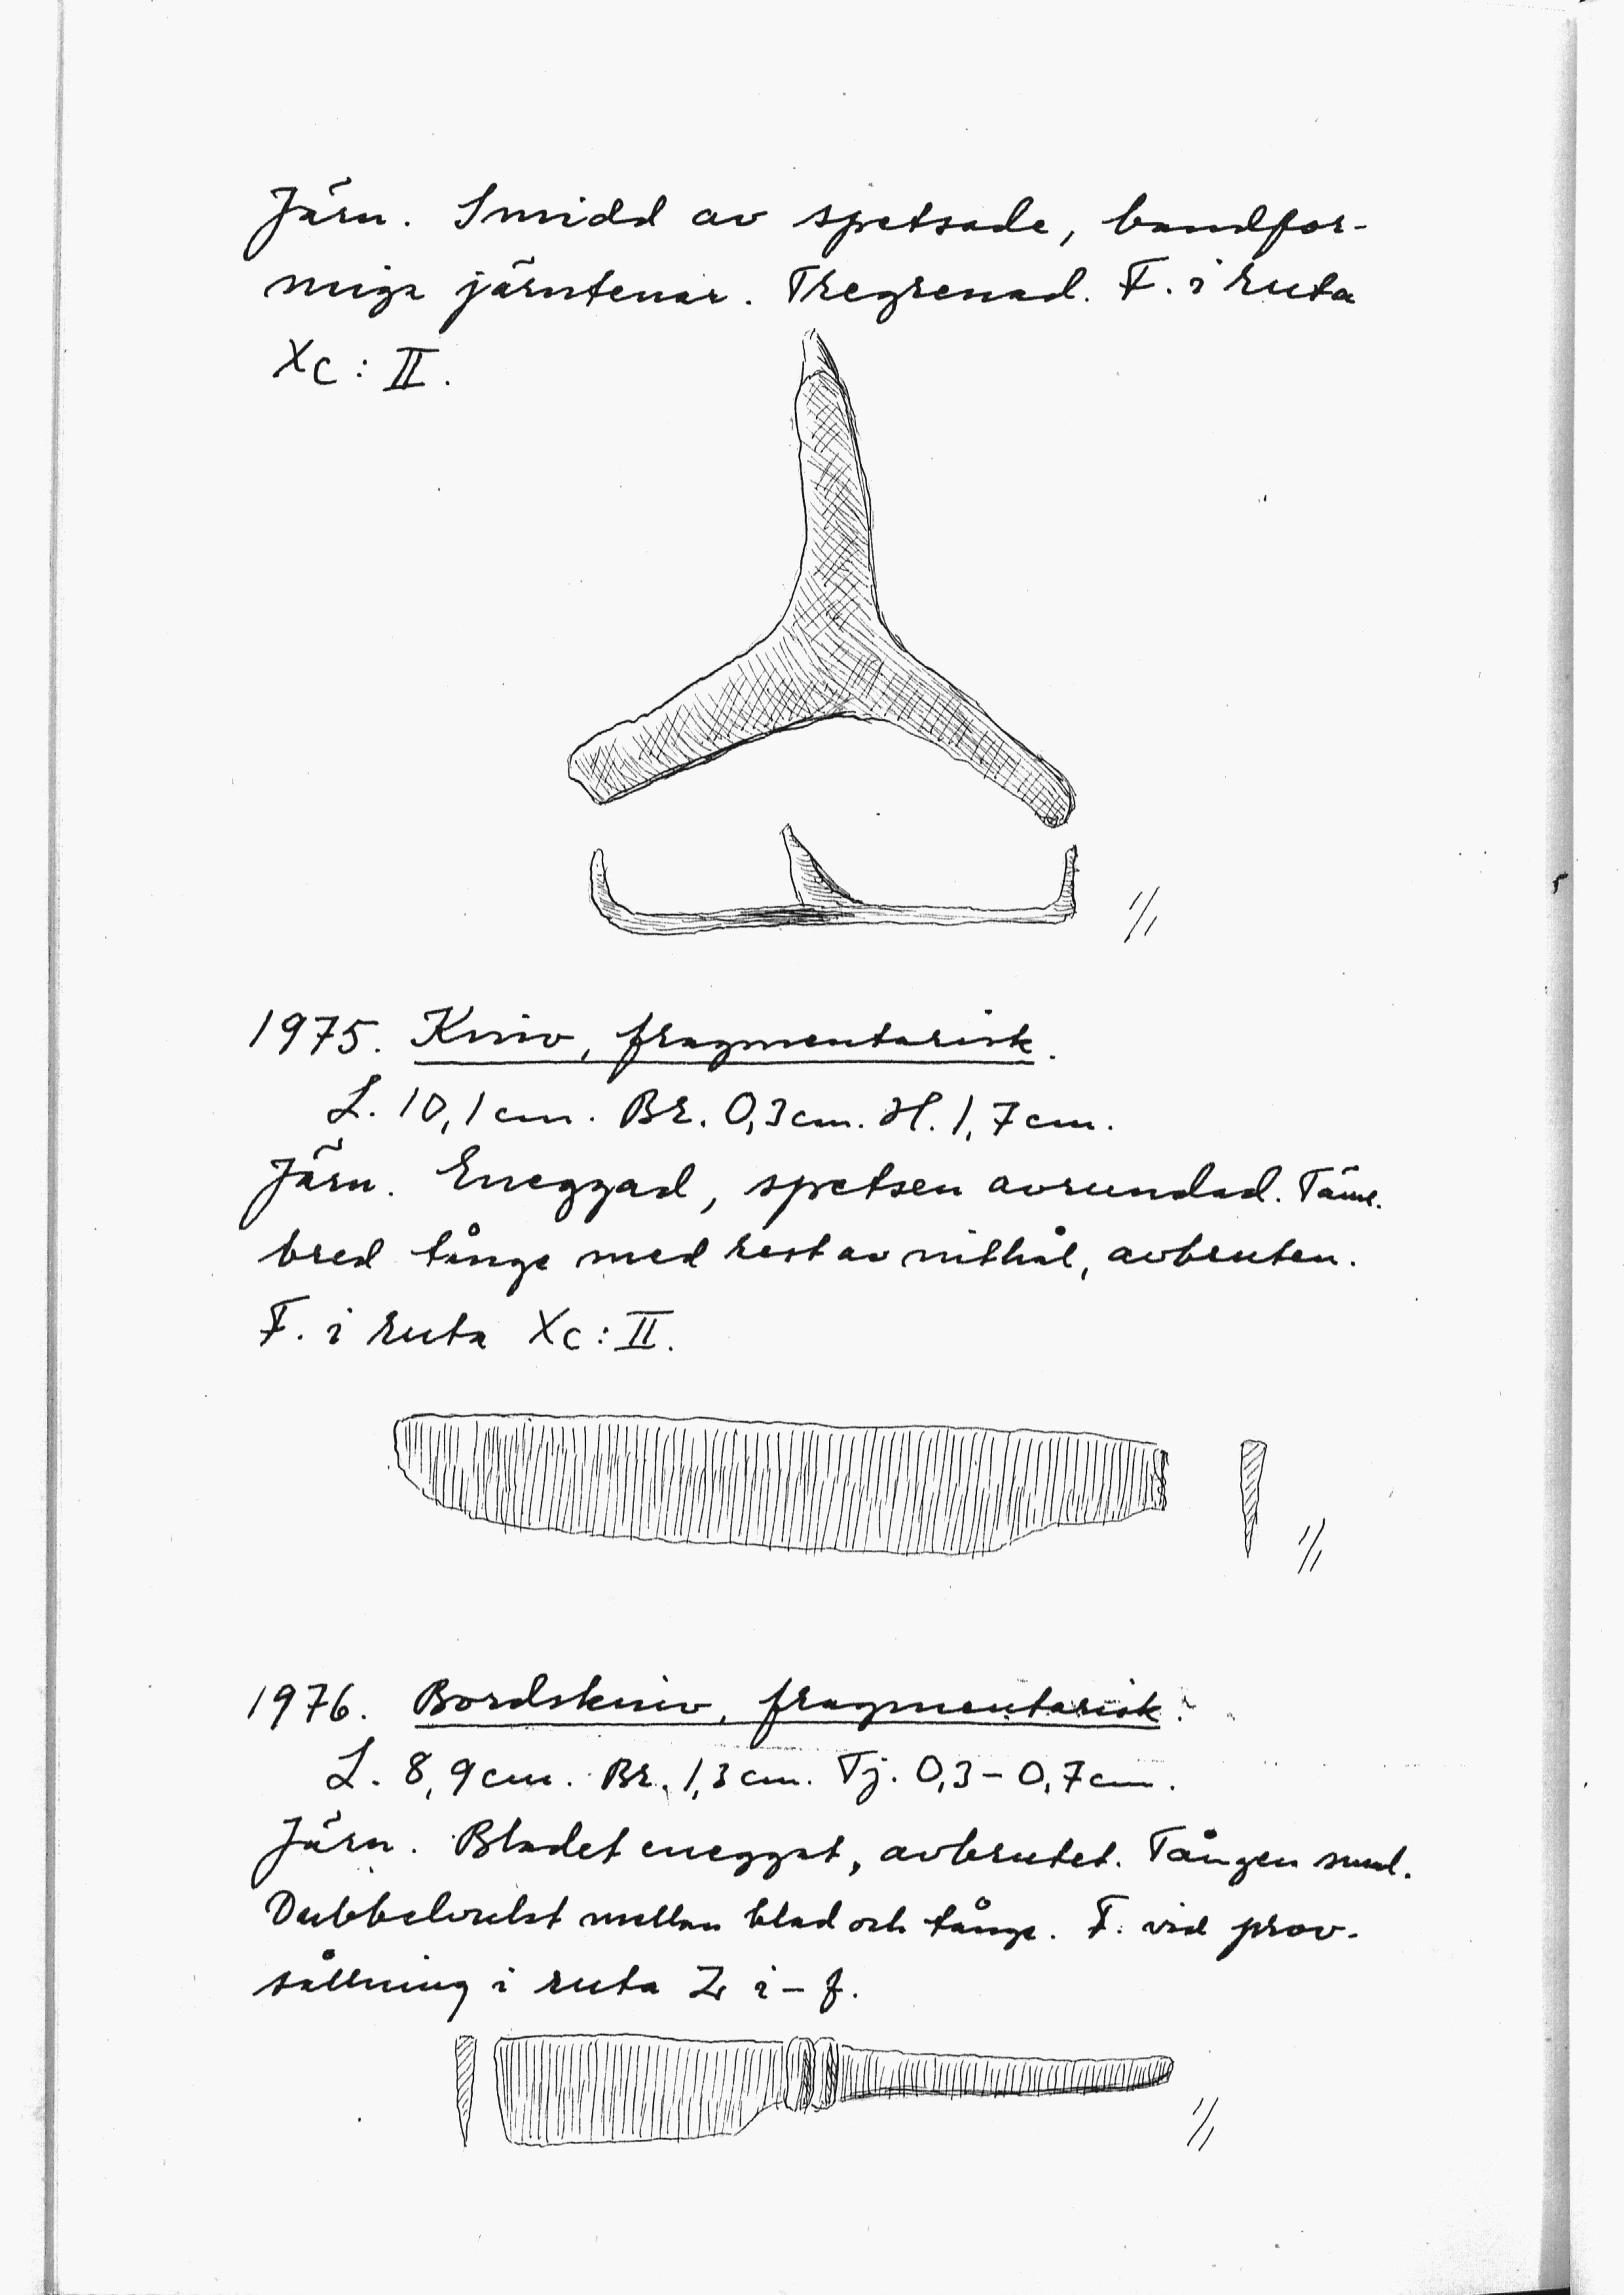 Järn. Smidd av spetsade, bandfor-
miga järntenar. Tregrenad. F. i ruta
Xc: II.
1/1
1975. Kniv, fragmentarisk.
L. 10,1 cm. Br. 0,3 cm. H. 1,7 cm.
Järn. Eneggad, spetsen avrundad. Täml.
bred tånge med rest av nithål, avbruten.
F. i ruta Xc: II.
1/1
1976. Bordskniv, fragmentarisk.
L. 8,9 cm. Br. 1,3 cm. Tj. 0,3-0,7 cm.
Järn. Bladet eneggat, avbrutet. Tången smal.
Dubbelvulst mellan blad och tånge. F. vid prov-
sållning i ruta Z i-f.
1/1